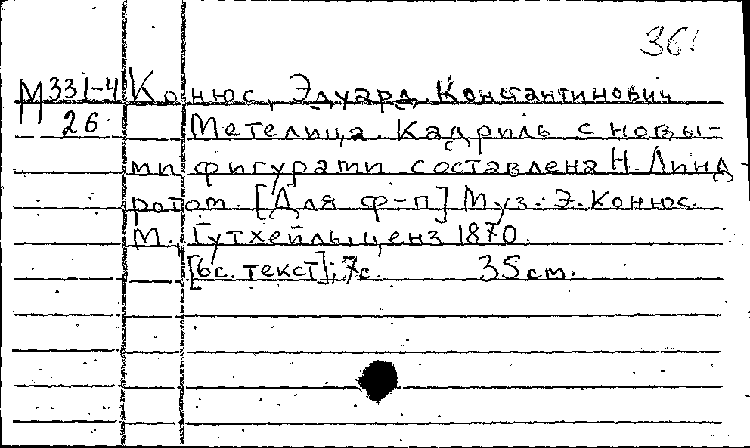 361
М331-4 Конюс, Эдуард Константинович
26 Метелица. Кадриль с новы-
ми фигурами составлена Н. Линд-
ротом. [Для ф-п] Муз. Э. Конюс.
М., Гутхейль, ценз 1870.
[6с. текст]; 7с. 35 см.